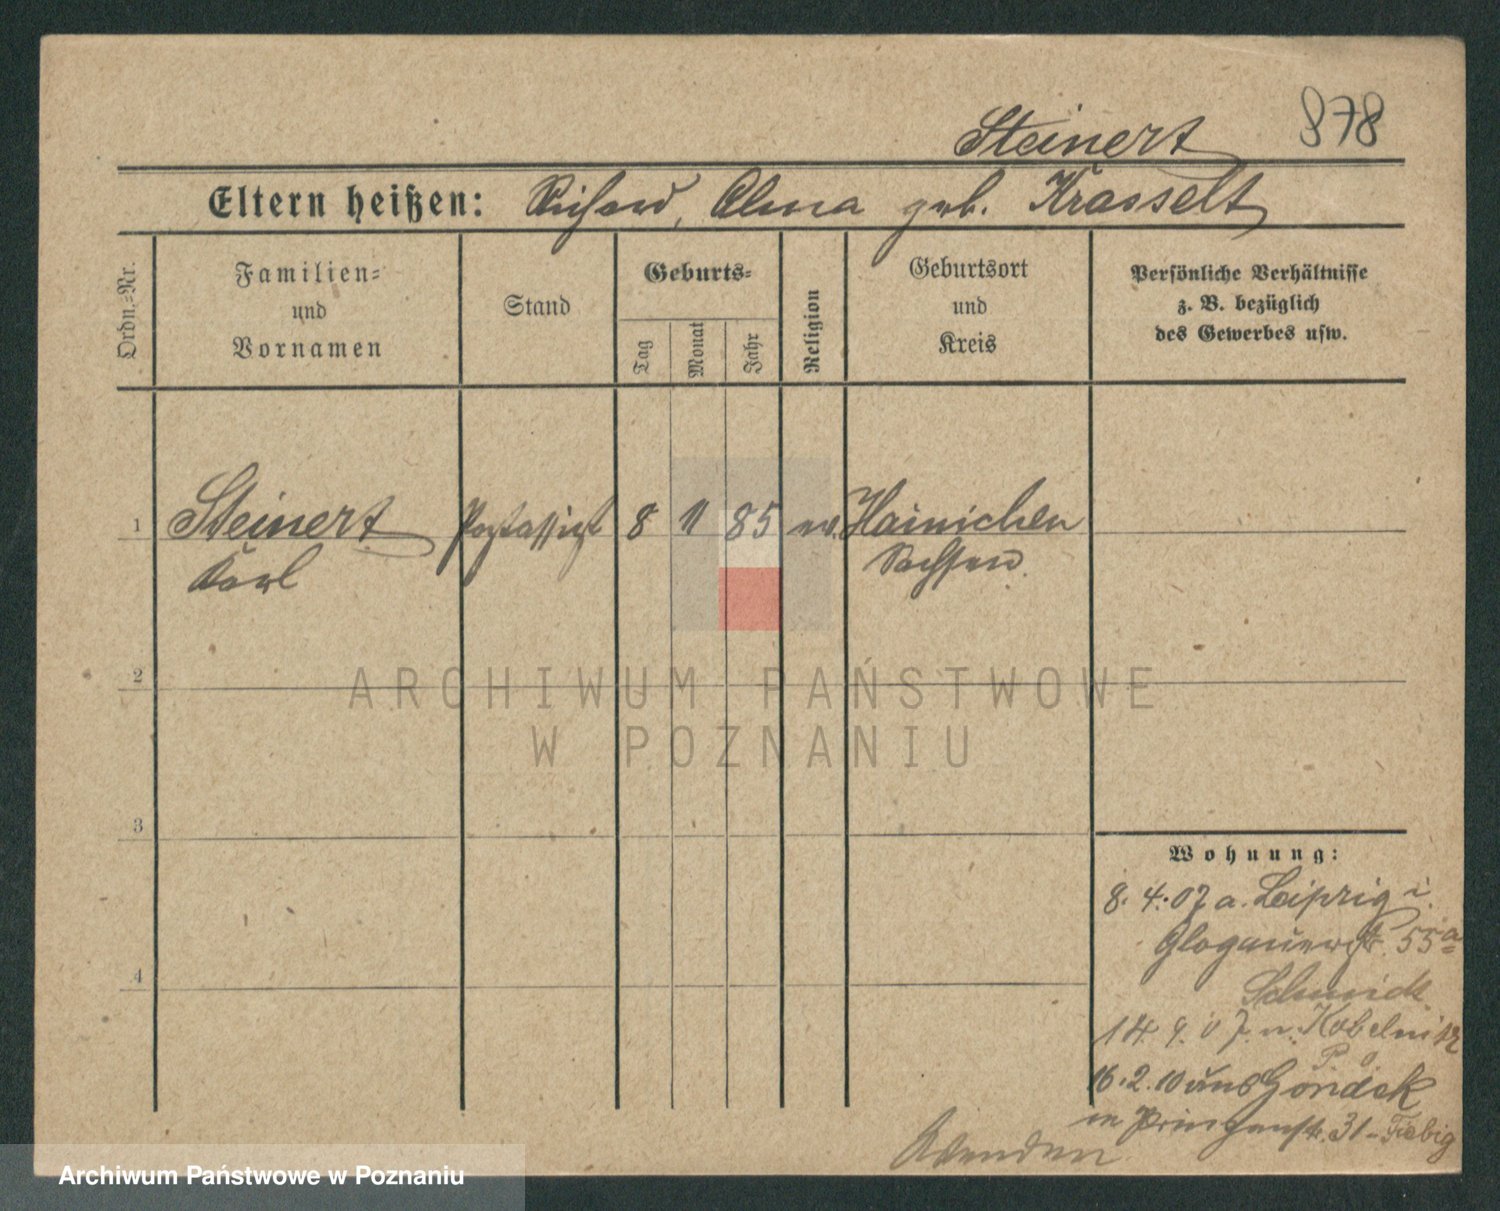 878
Steinert
Eltern heißen: Richard, Alma geb. Krasselt
Ordn.=Nr.
Familien=
und
Vornamen
Stand
Geburts=
Tag
Monat
Jahr
Religion
Geburtsort
und
Kreis
Persönliche Verhältnisse
z. B. bezüglich
des Gewerbes usw.
1
Steinert
Karl
Postassist
8
11
85
ev.
Hainichen
Sachsen
2
ARCHIWUM PAŃSTWOWE
W POZNANIU
3
4
Wohnung:
8. 4. 07 a. Leipzig i.
Glogauerstr. 55a
Schmidt
14. 9. 07. n. Kobelnitz
P. O
16. 2. 10 aus Gondek
in Prinzenstr. 31 - Fiebig
Wenden
Archiwum Państwowe w Poznaniu